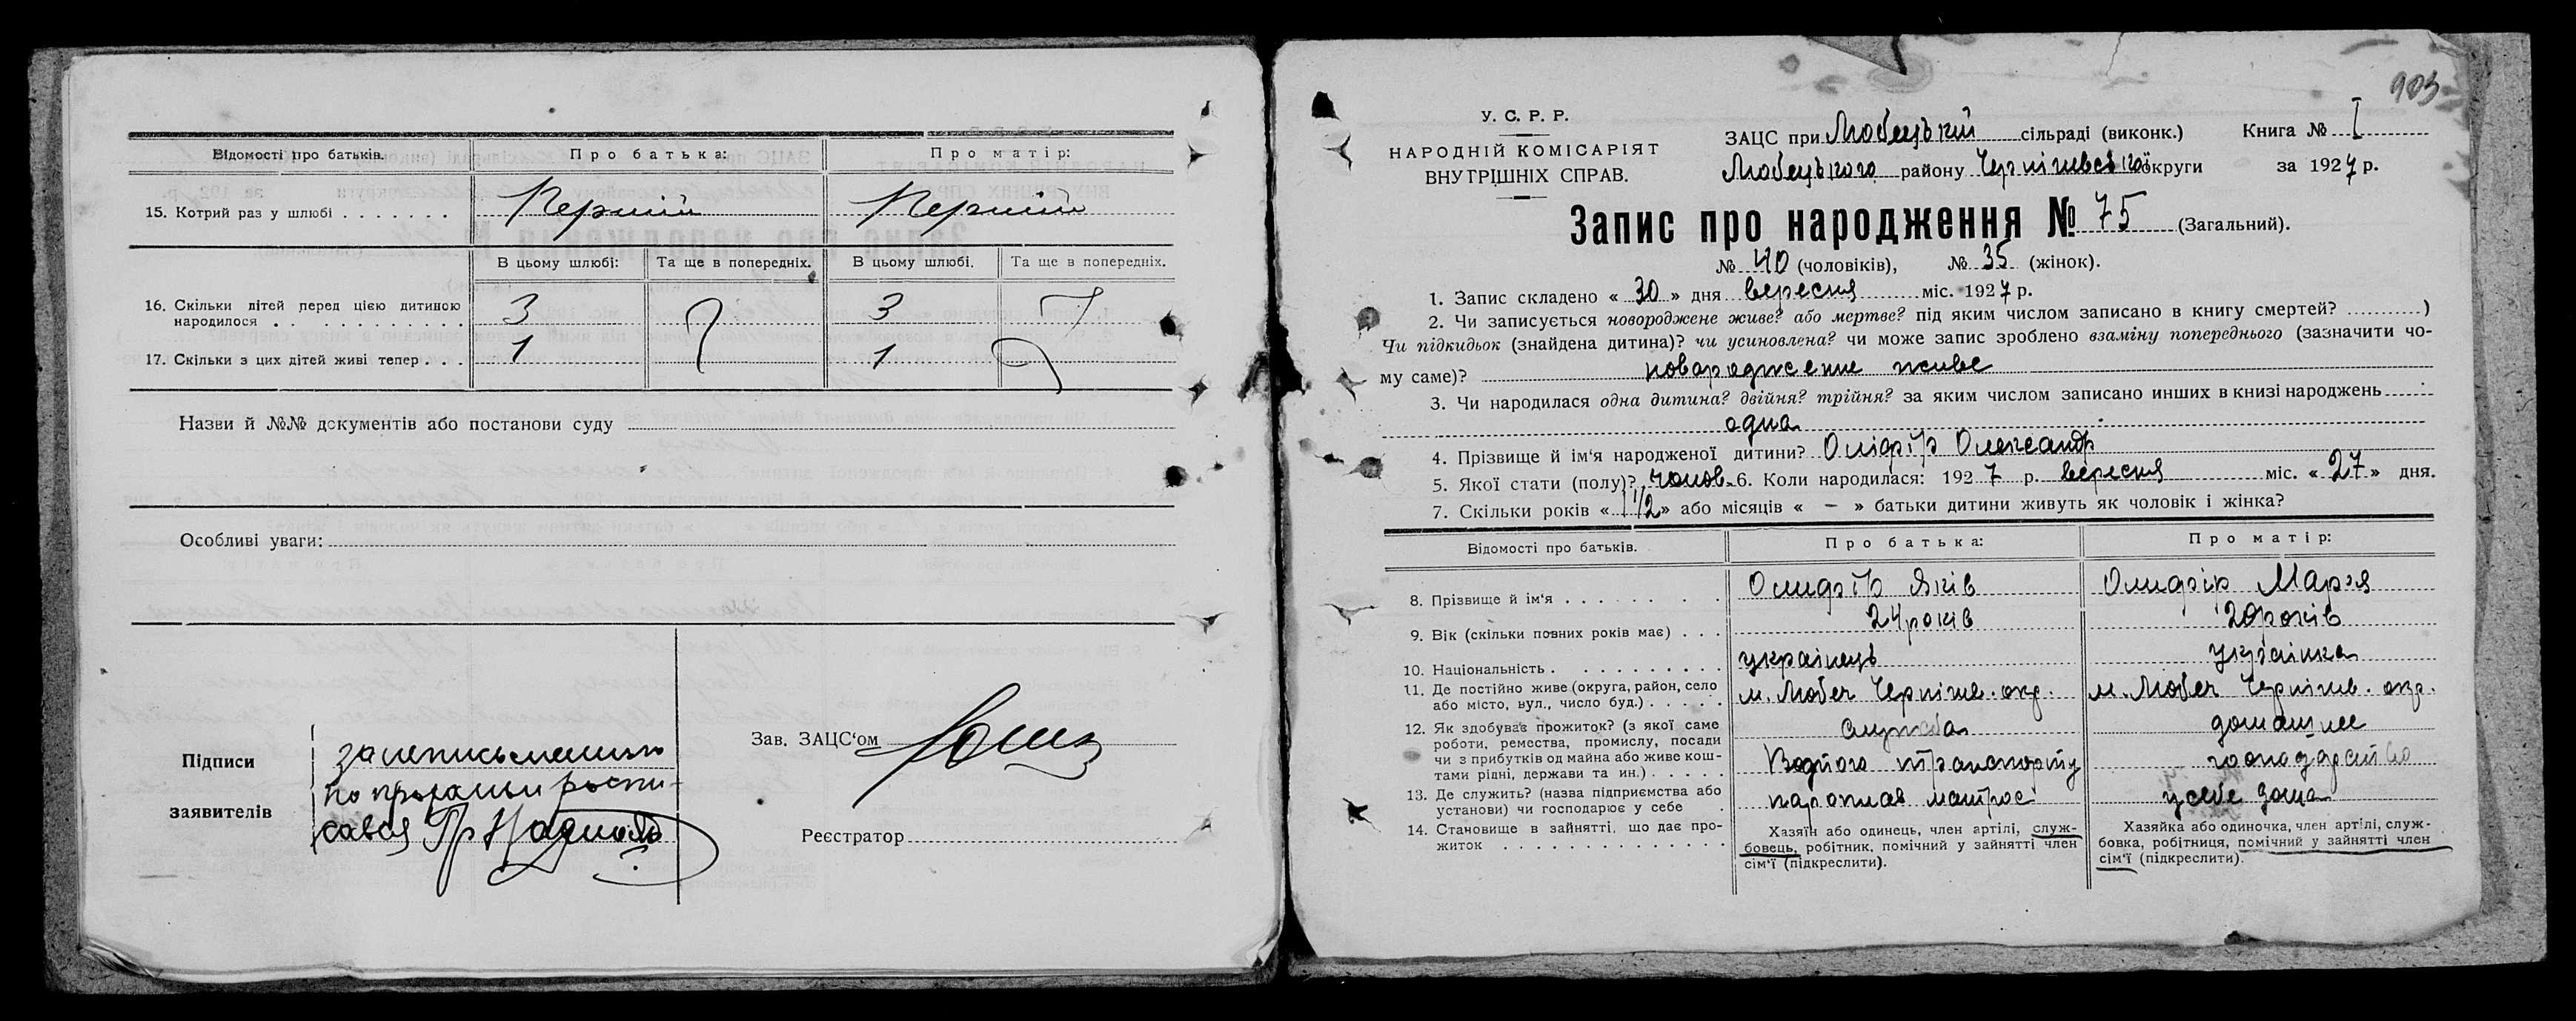 Відомості про батьків. Про батька: Про матір:
15. Котрий раз у шлюбі Перший Перший
В цьому шлюбі: Та ще в попередніх. В цьому шлюбі. Та ще в попередніх.
16. Скільки дітей перед цією дитиною 3 3
народилося
17. Скільки з цих дітей живі тепер 1 1
Назви й №№ документів або постанови суду
Особливі уваги:
Підписи
заявителів
за
по роспи-
савсь
Зав. ЗАЦС'ом
Реєстратор
903
У. С. Р. Р.
НАРОДНІЙ КОМІСАРІЯТ
ВНУТРІШНІХ СПРАВ.
ЗАЦС при Любецький сільраді (виконк.) Книга № I
Любецького району Чернігівської округи за 1927 р.
Запис про народження № 75 (Загальний).
№ 40 (чоловіків), № 35 (жінок).
1. Запис складено « 30 » дня вересня міс. 1927 р.
2. Чи записується новороджене живе? або мертве? під яким числом записано в книгу смертей? )
Чи підкидьок (знайдена дитина)? чи усиновлена? чи може запис зроблено взаміну попереднього (зазначити чо-
му саме)? новороджение живе
3. Чи народилася одна дитина? двійня? трійня? за яким числом записано инших в книзі народжень
одна
4. Прізвище й ім'я народженої дитини? Олександр
5. Якої стати (полу)? чолов. 6. Коли народилася: 1927 р. вересня міс. « 27 » дня.
7. Скільки років « 1 1/2 » або місяців « – » батьки дитини живуть як чоловік і жінка?
Відомості про батьків. Про батька: Про матір:
8. Прізвище й ім'я Яків Марія
9. Вік (скільки повних років має) 24 років 20 років
10. Національність українець українка
11. Де постійно живе (округа, район, село м. Любеч Черніг. окр. м. Любеч Черніг. окр.
або місто, вул., число буд.)
12. Як здобуває прожиток? (з якої саме служба домашнее
роботи, ремества, промислу, посади
чи з прибутків од майна або живе кош- Водного транспорту господарство
тами рідні, держави та ин.)
13. Де служить? (назва підприємства або пароплав матрос у себе дома
установи) чи господарює у себе
14. Становище в зайнятті, що дає про-
житок
Хазяїн або одинець, член артілі, служ-
бовець, робітник, помічний у зайнятті член
сім'ї (підкреслити).
Хазяйка або одиночка, член артілі, служ-
бовка, робітниця, помічний у зайнятті член
сім'ї (підкреслити).